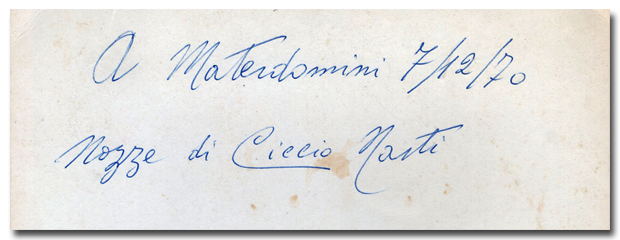 A Materdomini 7/12/70
Nozze di Ciccio Nasti